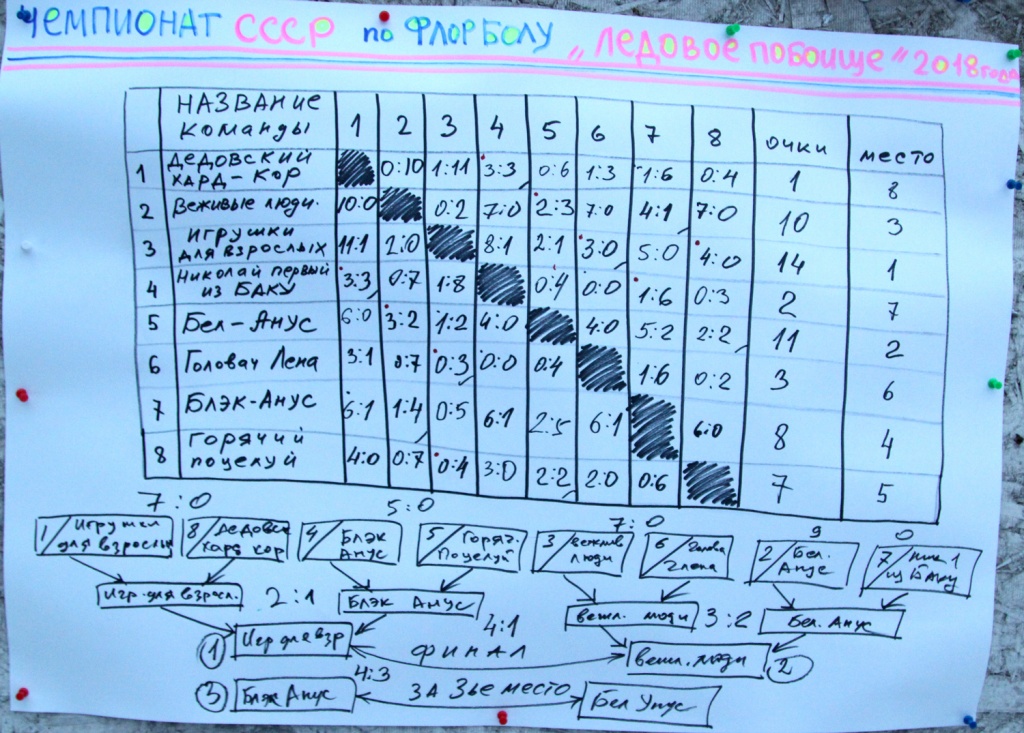 ЧЕМПИОНАТ СССР по ФЛОРБОЛУ „ЛЕДОВОЕ ПОБОИЩЕ" 2018 года
НАЗВАНИЕ КОМАНДЫ 1 2 3 4 5 6 7 8 ОЧКИ МЕСТО
1 ДЕДОВСКИЙ ХАРД-КОР 0:10 1:11 3:3 0:6 1:3 1:6 0:4 1 8
2 Веживые люди. 10:0 0:2 7:0 2:3 7:0 4:1 7:0 10 3
3 ИГРУШКИ ДЛЯ ВЗРОСЛЫХ 11:1 2:0 8:1 2:1 3:0 5:0 4:0 14 1
4 Николай первый из БАКУ 3:3 0:7 1:8 0:4 0:0 1:6 0:3 2 7
5 Бел-Анус 6:0 3:2 1:2 4:0 4:0 5:2 2:2 11 2
6 Головач Лена 3:1 0:7 0:3 0:0 0:4 1:6 0:2 3 6
7 Блэк-Анус 6:1 1:4 0:5 6:1 2:5 6:1 6:0 8 4
8 ГОРЯЧИЙ поцелуй 4:0 0:7 0:4 3:0 2:2 2:0 0:6 7 5
7:0 5:0 7:0 9 0
1/ Игрушки для взрослых 8/ Дедовск хард кор 4/ Блэк Анус 5/ Горяч. Поцелуй 3/ вежлив люди 6/ 2/ Бел. Анус 7/ Ник 1 из Баку
Игр. для взросл. 2:1 Блэк Анус вежл. люди 3:2 Бел. Анус
1 Игр для взр 4:1 ФИНАЛ вежл. люди 2
3 Блэк Анус 4:3 ЗА 3ье место Бел Унус